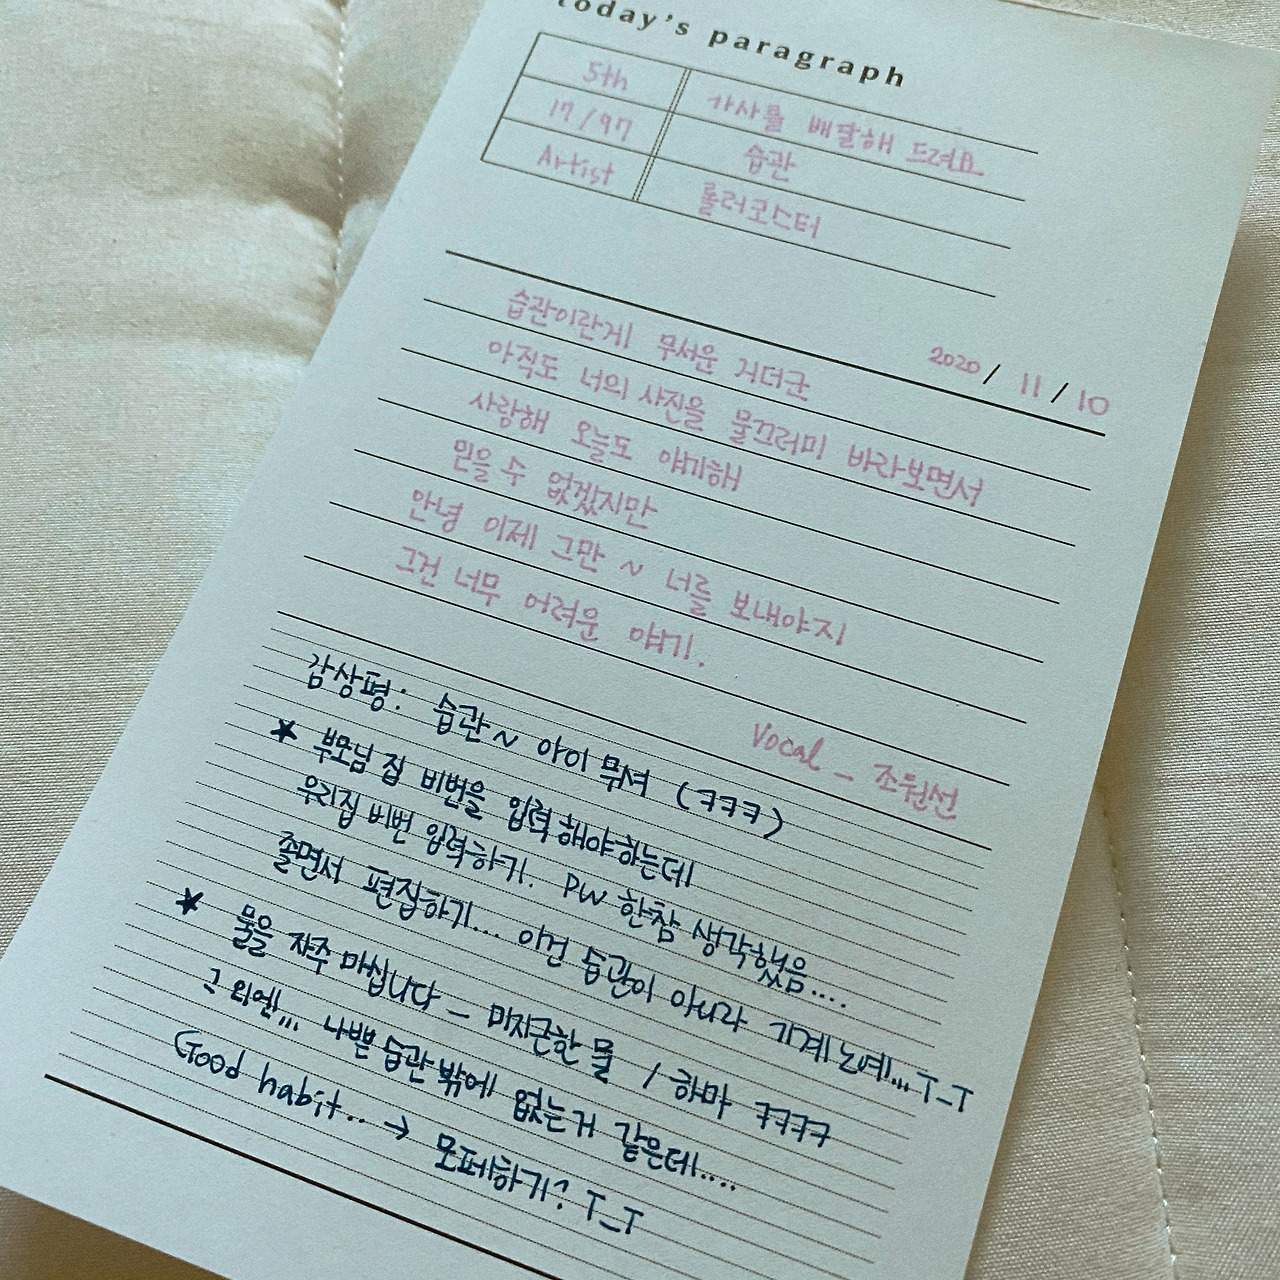 today's paragraph
5th 가사를 배달해 드려요
17/97 습관
Artist 롤러코스터
2020 / 11 / 10
습관이란게 무서운 거더군
아직도 너의 사진을 물끄러미 바라보면서
사랑해 오늘도 얘기해
믿을 수 없겠지만
안녕 이제 그만 ~ 너를 보내야지
그건 너무 어려운 얘기.
Vocal _ 조원선
감상평: 습관~ 아이 무셔 (ㅋㅋㅋ)
★ 부모님 집 비번을 입력해야하는데
우리집 비번 입력하기. PW 한참 생각했음....
졸면서 편집하기... 이건 습관이 아니라 기계노예!... T_T
★ 물을 자주 마십니다 _ 미지근한 물 / 하마 ㅋㅋㅋㅋ
그 외엔... 나쁜 습관 밖에 없는거 같은데....
Good habit... → 모페하기? T_T